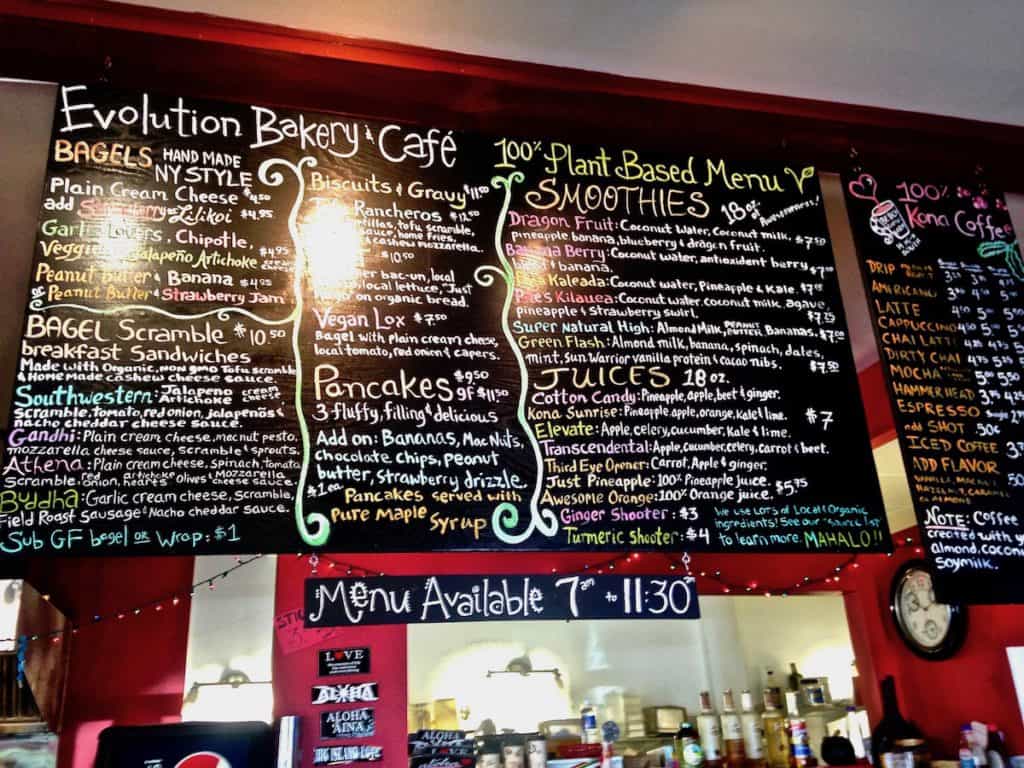 Evolution Bakery & Café
BAGELS HAND MADE
NY STYLE
Plain Cream Cheese $4.50
add Strawberry or Lilikoi $4.95
Garlic Lovers, Chipotle,
Veggie, Jalapeño Artichoke $4.95
Peanut Butter & Banana $4.95
or Peanut Butter & Strawberry Jam
BAGEL Scramble $10.50
breakfast Sandwiches
Made with Organic, non GMO Tofu scramble
& Home made cashew cheese sauce.
Southwestern: Jalapeno Artichoke cream cheese
scramble, tomato, red onion, jalapeños &
nacho cheddar cheese sauce.
Gandhi: Plain cream cheese, macnut pesto,
mozzarella cheese sauce, scramble & sprouts.
Athena: Plain cream cheese, spinach, tomato
Scramble, red onion, artichoke hearts, olives & Mozzarella cheese sauce.
Buddha: Garlic cream cheese, scramble,
Field Roast Sausage & Nacho cheddar sauce.
Sub GF bagel or Wrap: $1
Biscuits & Gravy $11.50
Rancheros $12.50
tofu, scramble,
sauce, home fries,
cashew mozzarella.
$10.50
bac-un, local
local lettuce, Just
on organic bread.
Vegan Lox $7.50
Bagel with plain cream cheese,
local tomato, red onion & capers.
Pancakes $9.50
GF $11.50
3 fluffy, filling & delicious
Add on: Bananas, Mac Nuts,
Chocolate chips, peanut
butter, strawberry drizzle.
$1 ea
Pancakes served with
Pure Maple Syrup
100% Plant Based Menu
SMOOTHIES 18 oz of Awesomeness!
Dragon Fruit: Coconut water, Coconut milk,
pineapple banana, blueberry & dragon fruit. $7.50
Banana Berry: Coconut water, antioxidant berry
& banana. $7.00
Kaleada: Coconut water, Pineapple & Kale. $7.00
Pele's Kilauea: Coconut water, coconut milk, agave,
pineapple & strawberry swirl. $7.25
Super Natural High: Almond Milk, Peanut Butter, Bananas. $7.00
Green Flash: Almond milk, banana, spinach, dates,
mint, Sun Warrior vanilla protein & cacao nibs. $7.50
JUICES 18 oz.
Cotton Candy: Pineapple, apple, beet & ginger.
Kona Sunrise: Pineapple, apple, orange, Kale & lime. $7
Elevate: Apple, celery, cucumber, Kale & lime.
Transcendental: Apple, cucumber, celery, carrot & beet.
Third Eye Opener: Carrot, Apple & ginger.
Just Pineapple: 100% Pineapple juice. $5.75
Awesome Orange: 100% Orange juice.
Ginger Shooter: $3
Turmeric Shooter: $4
We use Lots of Local & Organic
ingredients! See our "source list"
to learn more. MAHALO!!
100%
Kona Coffee
DRIP
AMERICANO
LATTE
CAPPUCCINO
CHAI LATTE
DIRTY CHAI
MOCHA
HAMMERHEAD
ESPRESSO
add SHOT .50¢
ICED COFFEE
ADD FLAVOR
VANILLA, MACNUT,
HAZELNUT, CARAMEL
ALMOND
NOTE: Coffee
created with
almond, coconut
soymilk.
Menu Available 7am to 11:30
LOVE
ALOHA
ALOHA
AINA
BIG ISLAND LOVE
ALOHA